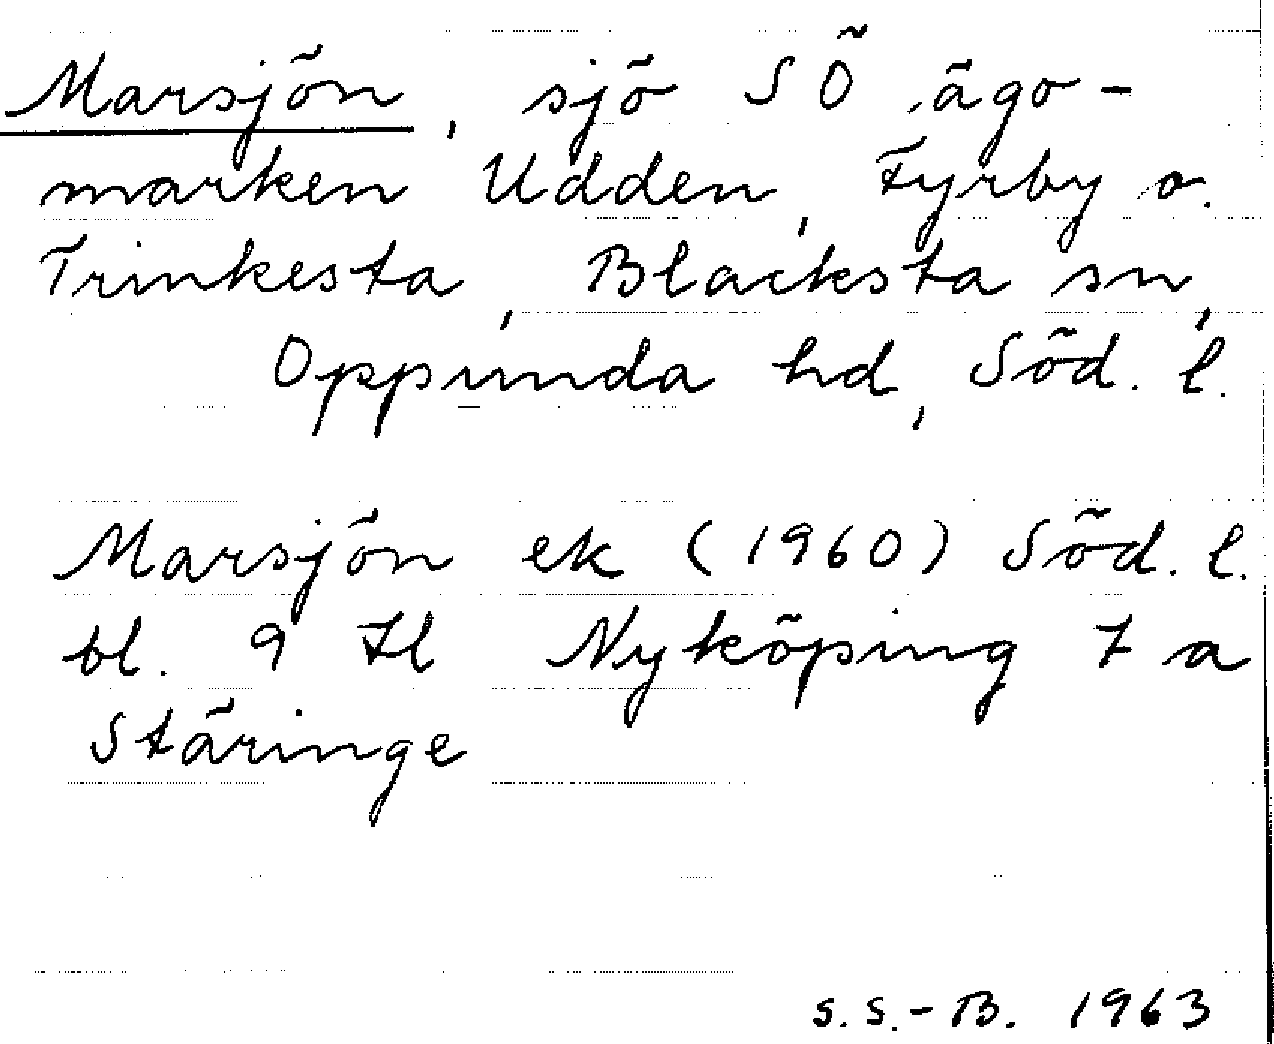 Marsjön, sjö SÖ ägo-
marken Udden, Fyrby o.
Trinkesta, Blacksta sn,
Oppunda hd, Söd. l.
Marsjön ek (1960) Söd. l.
bl. 9 H Nyköping 7 a
Stäringe
S.S.-B. 1963